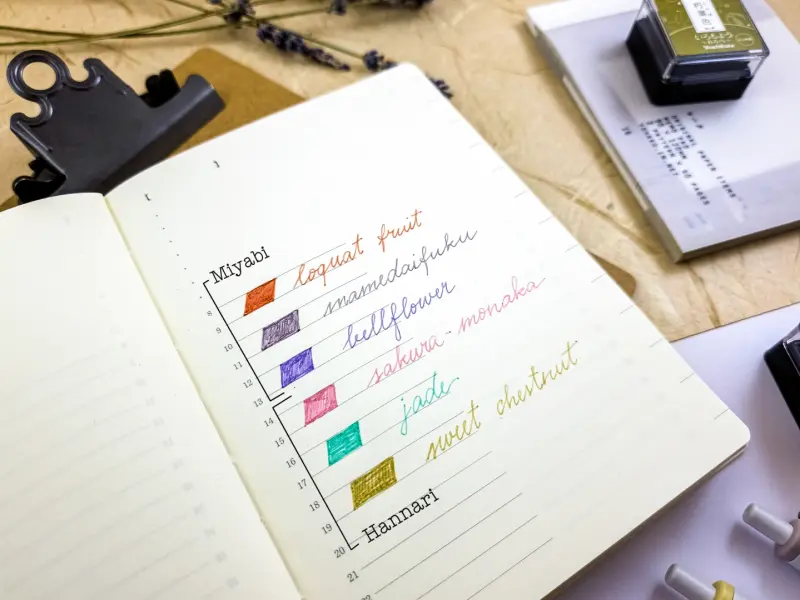 [ ]
Miyabi
8 loquat fruit
9 mamedaifuku
10
11 bellflower
12
13 sakura-monaka
14
15 jade
16
17 sweet chestnut
18
19
20 Hannari
21
22
ORIGINAL PAPER ITEMS